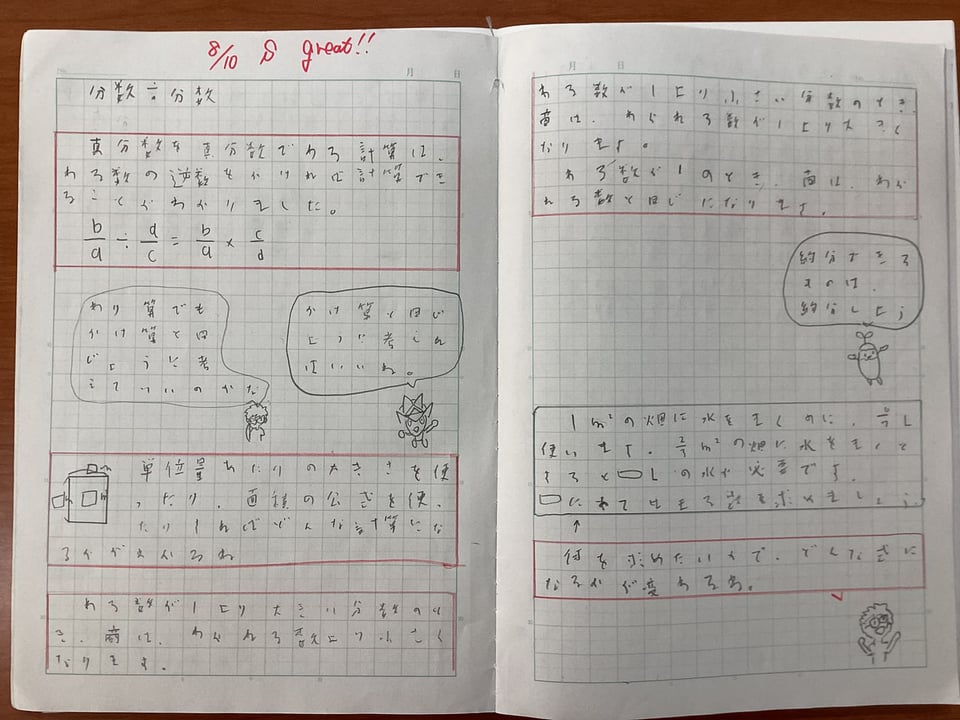 8/10 S great!!
月 日
分数÷分数
真分数を真分数でわる計算は、
わる数の逆数をかければ計算でき
ることがわかりました。
b/a ÷ d/c = b/a × c/d
わり算でも
かけ算と同
じように考
えていいのかな
かけ算と同じ
ように考えれ
ばいいね。
単位量あたりの大きさを使
ったり、面積の公式を使っ
たりすればどんな計算にな
るかがわかるね
わる数が1より大きい分数のと
き、商は、わられる数より小さく
なります。
月 日
わる数が1より小さい分数のとき、
商は、わられる数より大きく
なります。
わる数が1のとき、商は、わら
れる数と同じになります。
約分できる
ものは、
約分しよう
1m²の畑に水をまくのに、 L
使います。 m²の畑に水をまくと
すると□Lの水が必要です。
□にあてはまる数を求めましょう
↑
何を求めたいかで、どんな式に
なるかが変わるね。